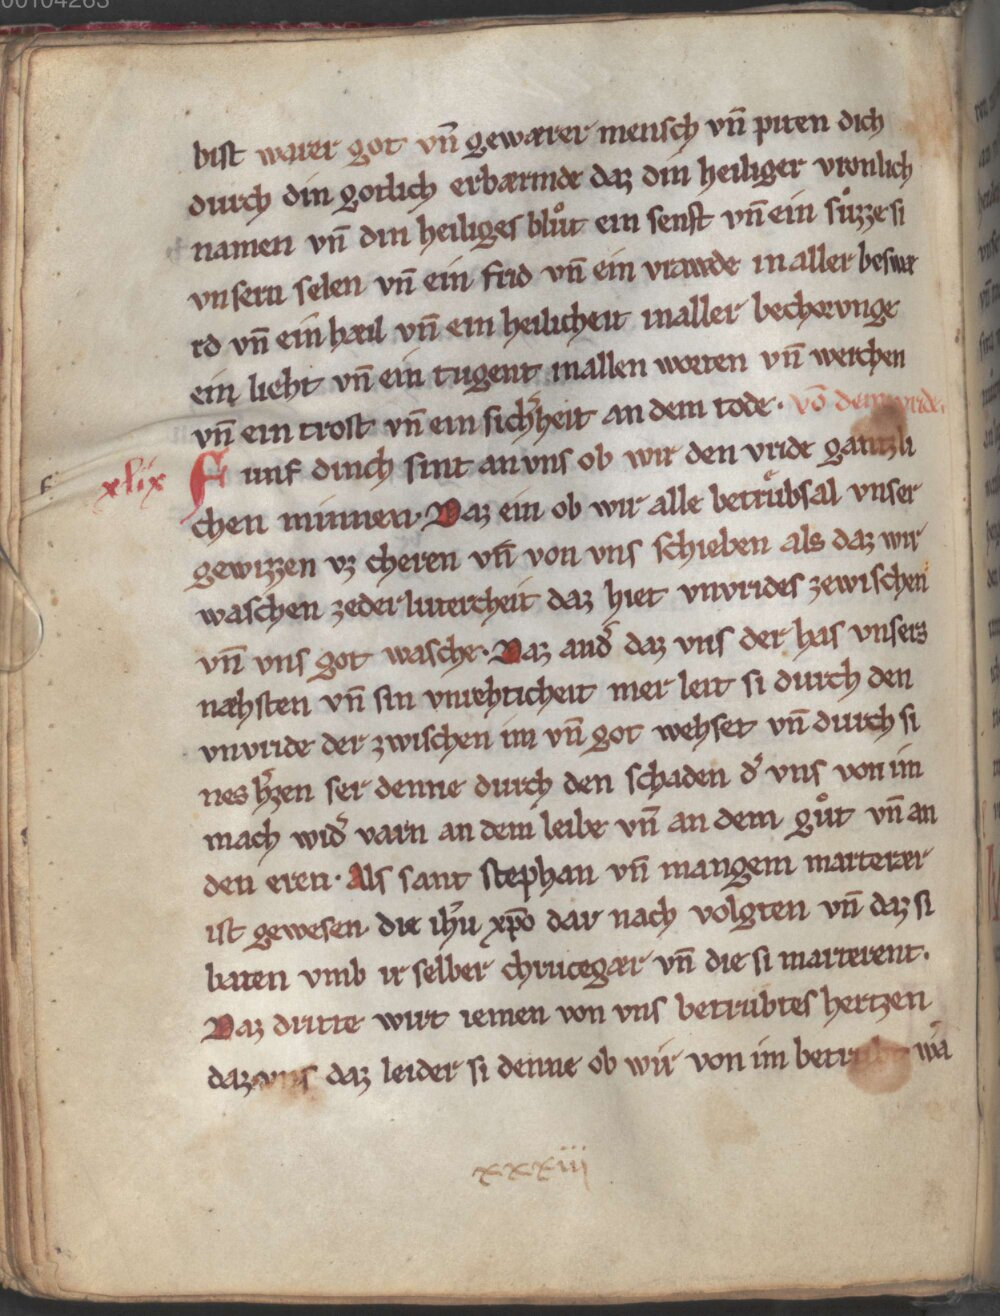 bist warer got vn̄ gewærer mensch vn̄ piten dich
durch din gotlich erbærmde daz din heiliger vronlich
namen vn̄ din heiliges blůt ein senft vn̄ ein sůzze si
vnsern selen vn̄ ein frid vn̄ ein vrawde in aller beswæ
rd vn̄ ein hæil vn̄ ein heilicheit in aller bechorvnge
ein lieht vn̄ ein tugent in allen worten vn̄ werchen
vn̄ ein trost vn̄ ein sich͛heit an dem tode. vō dem vride.
xlix Funf dinch sint an vns ob wir den vride gantzli
chen minnen. Daz ein ob wir alle betrůbsal vnser
gewizzen vz cheren vn̄ von vns schieben als daz wir
waschen ze der lutercheit daz hiet vnvrides zewischen
vn̄ vns got wasche. Daz and͛ daz vns der has vnsers
næhsten vn̄ sin vnrehticheit mer leit si durch den
vnvride der zwischen im vn̄ got wehset vn̄ durch si
nes h͛zen ser denne durch den schaden d͛ vns von im
mach wid͛ varn an dem leibe vn̄ an dem gůt vn̄ an
den eren. Als sant stephan vn̄ mangem marterær
ist gewesen die ih̄u xp̄o dar nach volgten vn̄ daz si
baten vmb ir selber chrucegær vn̄ die si marterent.
Daz dritte wirt iemen von vns betrubtes hertzen
daz vns daz leider si denne ob wir von im betrubt wn͛
xxxiii